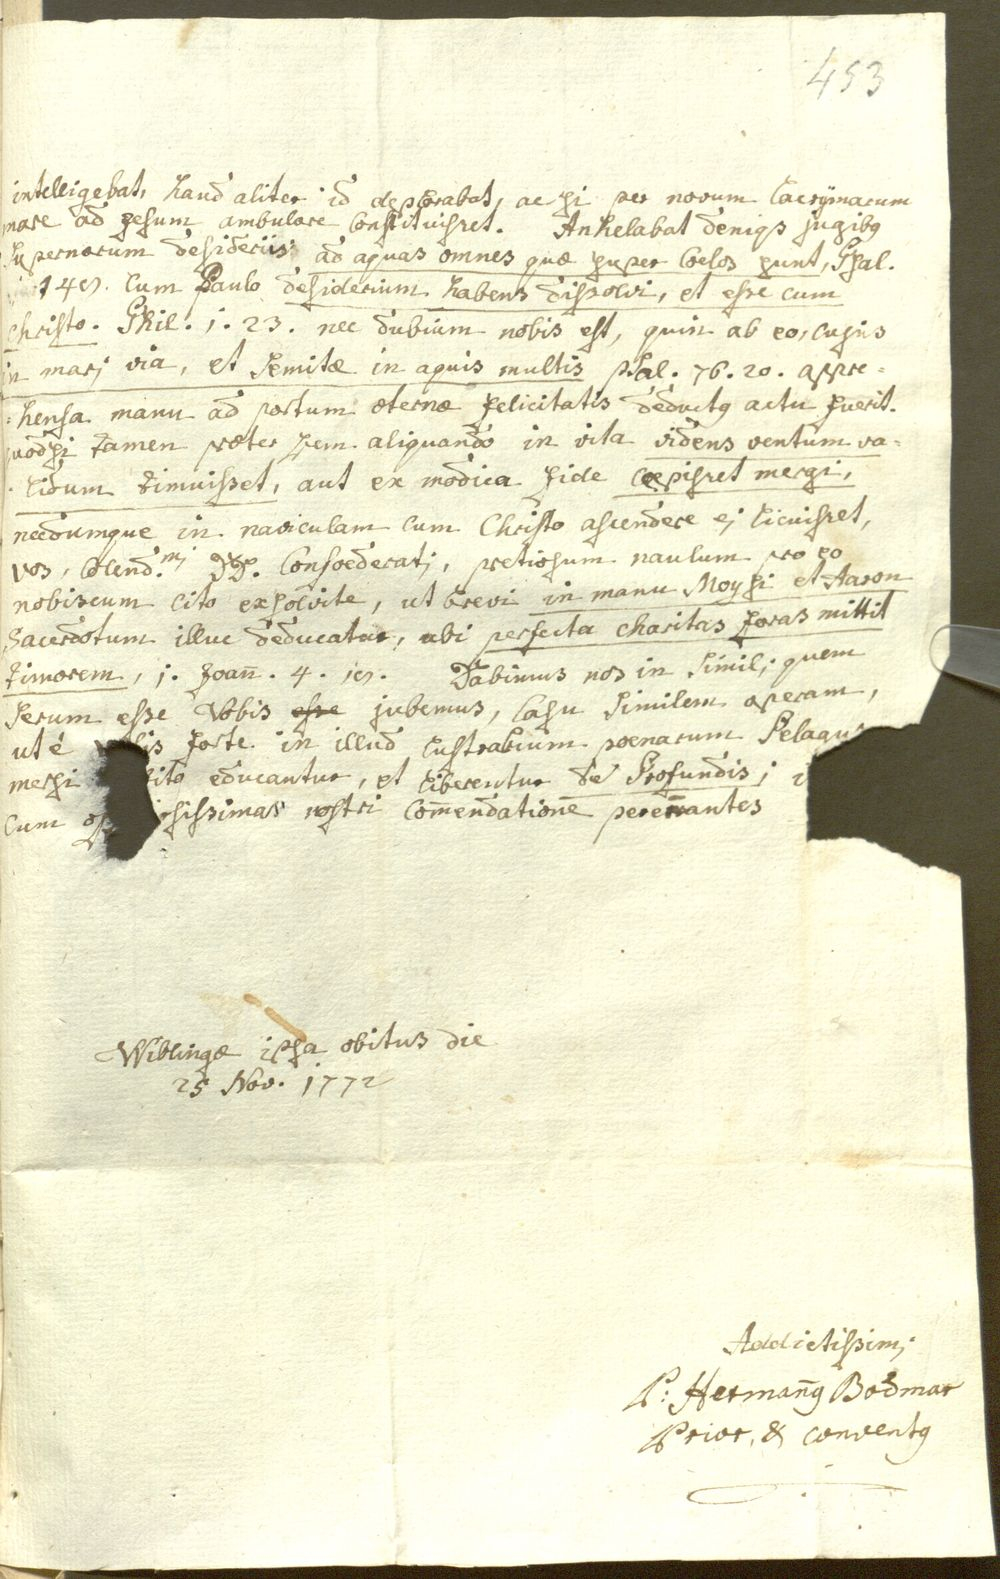 453
intelligebat, haud aliter id deplorabat, ac si per novum lacrÿmarum
mare ad Jesum ambulare constituisset. Anhelabat deniqs jugibq
supernorum desideriis ad aquas omnes quæ super Coelos sunt, Psal.
148. cum Paulo desiderium habens dissolvi, et esse cum
Christo. Phil. 1. 23. nec dubium nobis est, quin ab eo, cujus
in marj via, et semitæ in aquis multis Psal. 76. 20. appre=
=hensa manu ad portum æternæ felicitatis deductq actu fuerit.
quodsi tamen præter spem aliquando in vita videns ventum va=
lidum timuisset, aut ex modica fide coepisset mergi,
necdumque in naviculam cum Christo ascendere ej licuisset,
vos, Colend.mj DD. Confoederatj, pretiosum naulum pro eo
nobiscum cito exsolvite, ut brevi in manu Moysi et Aaron
Sacerdotum illuc deducatur, ubi perfecta charitas foras mittit
timorem, 1. Joan̄. 4. 18. Dabimus nos in simili, quem
serum esse Vobis esse jubemus, casu similem operam,
ut é forte in illud lustralium poenarum
mersi cito educantur, et liberentur de Profundis;
cum nostri com̄endatione perennantes
Wiblingæ ipsa obitus die
25 Nov. 1772
Addictissimj
P: Herman̄q Bodmar
Prior, & conventq